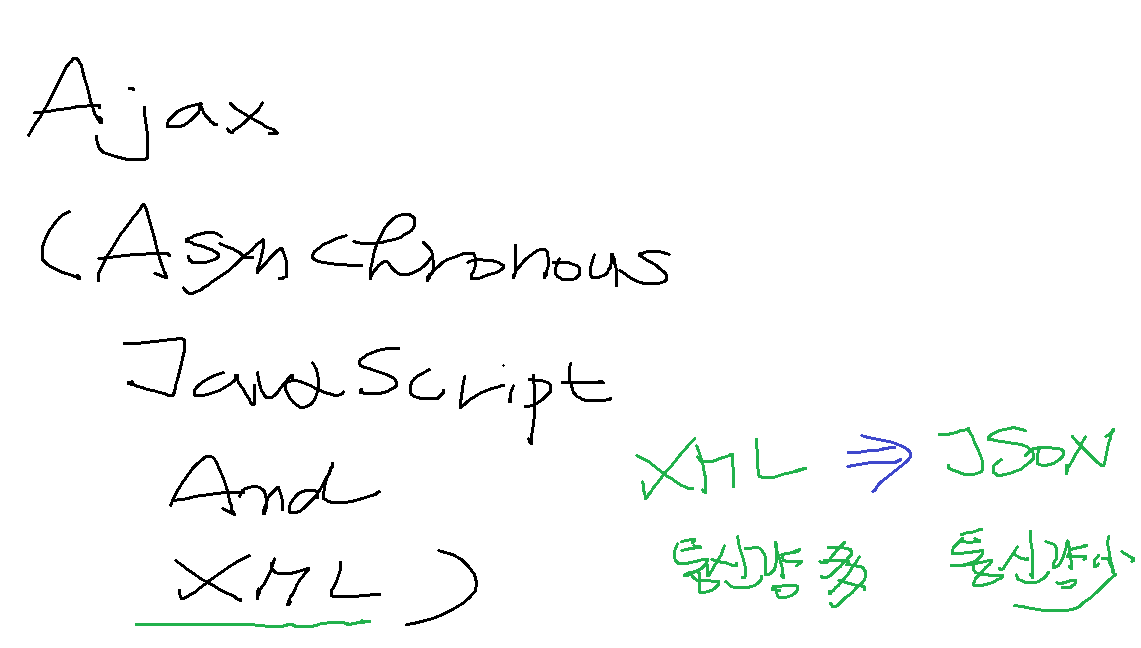 Ajax
(Asynchronous
JavaScript
And
XML)
XML ⇒ JSON
통신량 多 통신량 少